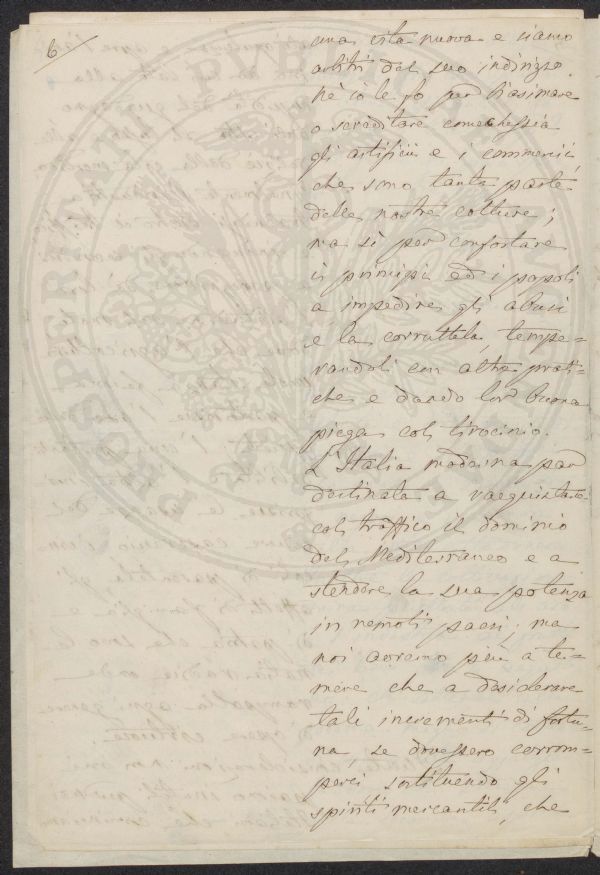 6
una età nuova e siamo
arbitri del suo indirizzo.
Nè ciò le fo per biasimare
o screditare comechessia
gli artifizii e i commercii,
che sono tanta parte
delle nostre colture;
ma sì per confortare
i principi ed i popoli
a impedire gli abusi
e la corruttela, tempe=
randoli con altre prati=
che e dando lor buona
piega col tirocinio.
L'Italia moderna par
destinata a racquistare
col traffico il dominio
del Mediterraneo e a
stendere la sua potenza
in remoti paesi; ma
noi avremo più a te=
mere che a desiderare
tali incrementi di fortu=
na, se dovessero corrom=
perci sostituendo gli
spiriti mercantili, che